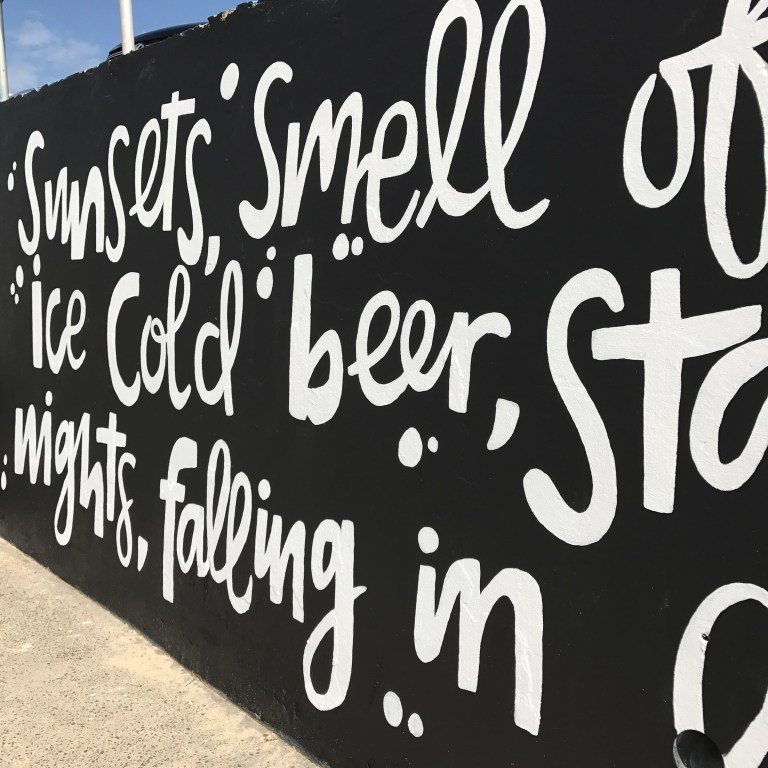 Sunsets, Smell of
ice cold beer,
nights, falling in